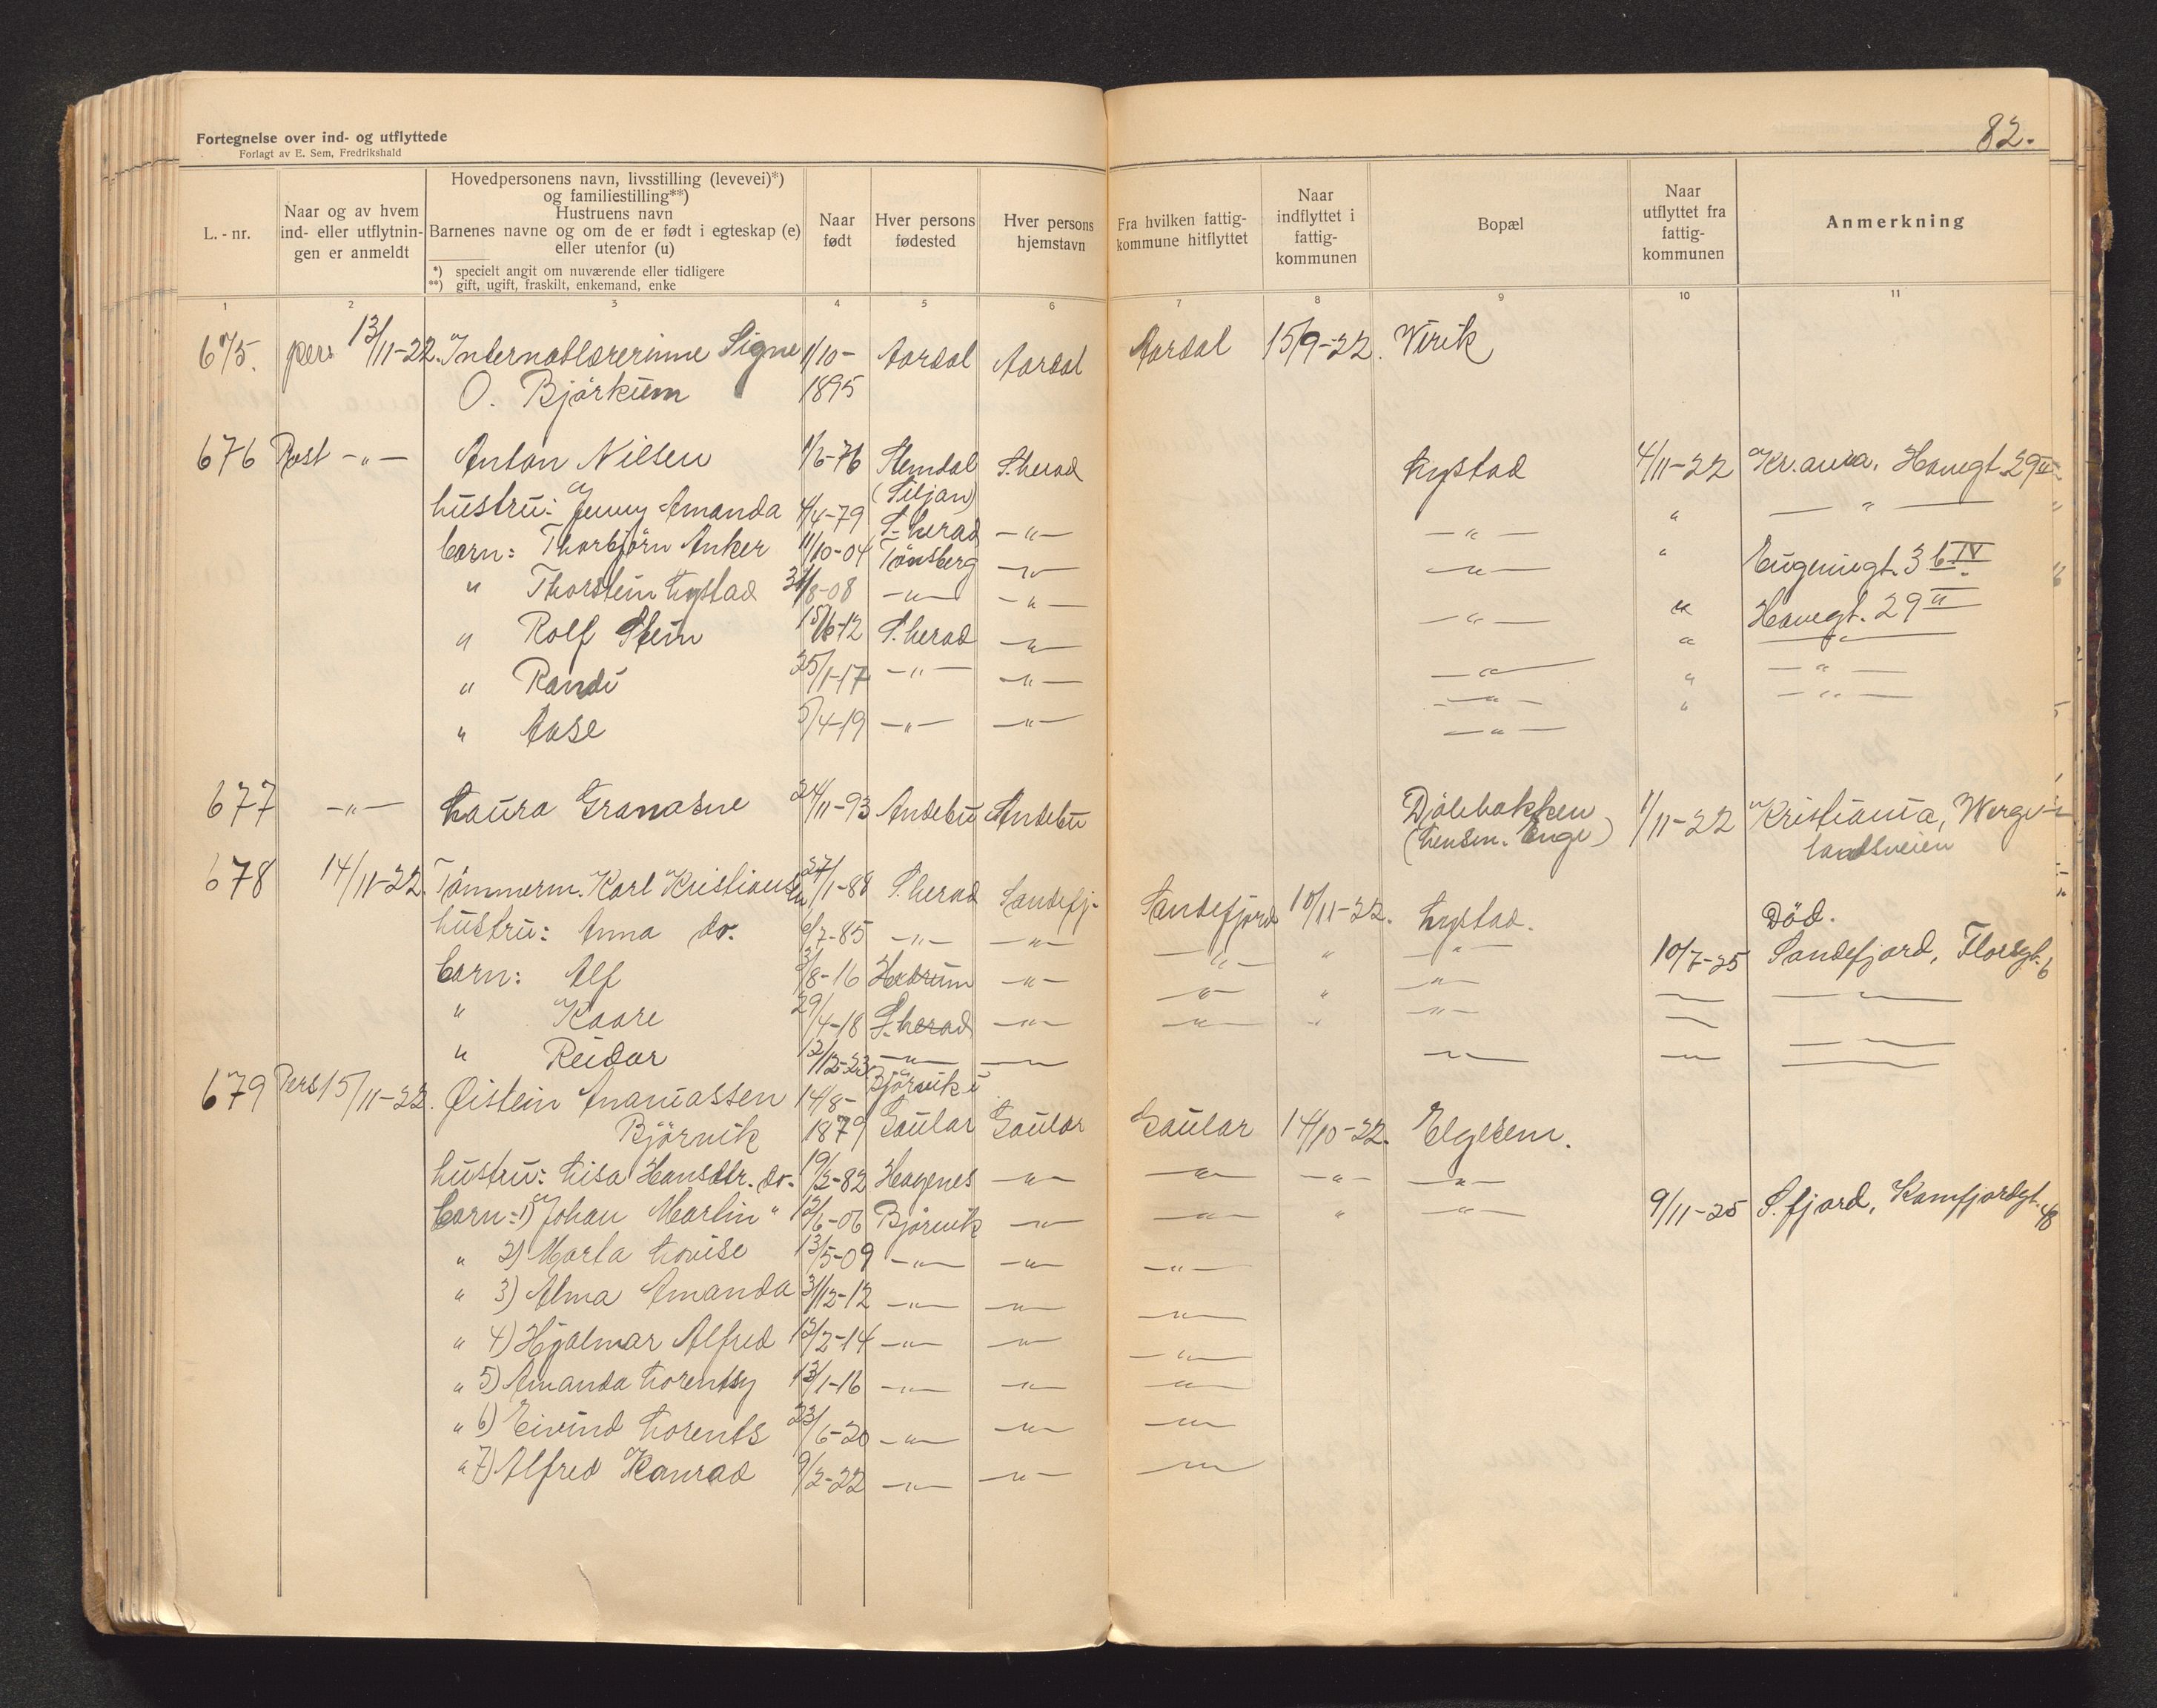 Fortegnelse over ind- og utflyttede
Forlagt av E. Sem, Fredrikshald
82.
L. - nr.
Naar og av hvem ind- eller utflytnin- gen er anmeldt
Hovedpersonens navn, livsstilling (levevei)*)
og familiestilling**)
Hustruens navn
Barnenes navne og om de er født i egteskap (e)
eller utenfor (u)
*) specielt angit om nuværende eller tidligere
**) gift, ugift, fraskilt, enkemand, enke
Naar født
Hver persons fødested
Hver persons hjemstavn
Fra hvilken fattig- kommune hitflyttet
Naar indflyttet i fattig- kommunen
Bopæl
Naar utflyttet fra fattig- kommunen
Anmerkning
1 2 3 4 5 6 7 8 9 10 11
675. pers 13/11-22. Internatlærerinne Signe 1/10- Aardal Aardal Aardal 15/9-22. Virik
O. Bjørkum 1895
676 Post -"- Anton Nilsen 1/6-76 Slemdal S.herad Lystad 4/11-22 Kr.ania, Hauegt. 29 II
(Siljan)
hustru: Jenny Amanda 4/4-79 S.herad -"- -"- " -"-
barn: Thorbjørn Anker 11/10-04 Tønsberg -"- -"- " Eugeniegt. 3 b IV
" Thorstein Lystad 31/8-08 -"- -"- -"- " Hauegt. 29 II
" Rolf Stein 15/6-12 S.herad -"- -"- " -"-
" Randi 25/1-17 -"- -"- -"- " -"-
" Aase 5/4-19 -"- -"- -"- " -"-
677 -"- Laura Granasne 24/11-93 Andebu Andebu Djølebakken 1/11-22 Kristiania, Werge-
(Lensm. Enge) landsveien
678 14/11-22. Tømmerm. Karl Kristiansen 27/1-88 S.herad Sandefj. Sandefjord 10/11-22. Lystad. Død.
hustru: Anna do. 6/7-85 -"- -"- -"- " -"- 10/7-25 Sandefjord, Floesgt. 6
barn: Alf 3/8-16 Hedrum -"- -"- " -"- -"- -"-
" Kaare 29/4-18 S.herad -"- -"- " -"- -"- -"-
" Reidar 12/12-23 -"- -"- -"- -"- -"-
679 Pers 15/11-22. Øistein Ananiassen 14/8- Bjørvik i
Bjørvik 1879 Gaular Gaular Gaular 14/10-22. Elgesem.
hustru: Lisa Hansdtr. do. 19/2-82 Hagenes -"- -"- -"- -"-
barn: 1) Johan Martin " 12/6-06 Bjørvik -"- -"- " -"- 9/11-25 S.fjord, Kamfjordgt. 48
" 2) Marta Lovise 13/5-09 -"- -"- -"-
" 3) Alma Amanda 31/12-12 -"- -"- -"-
" 4) Hjalmar Alfred 12/2-14 -"- -"- -"-
" 5) Amanda Lorentsy 13/1-16 -"- -"- -"-
" 6) Eivind Lorents 23/6-20 -"- -"- -"-
" 7) Alfred Konrad 9/2-22 -"- -"- -"-